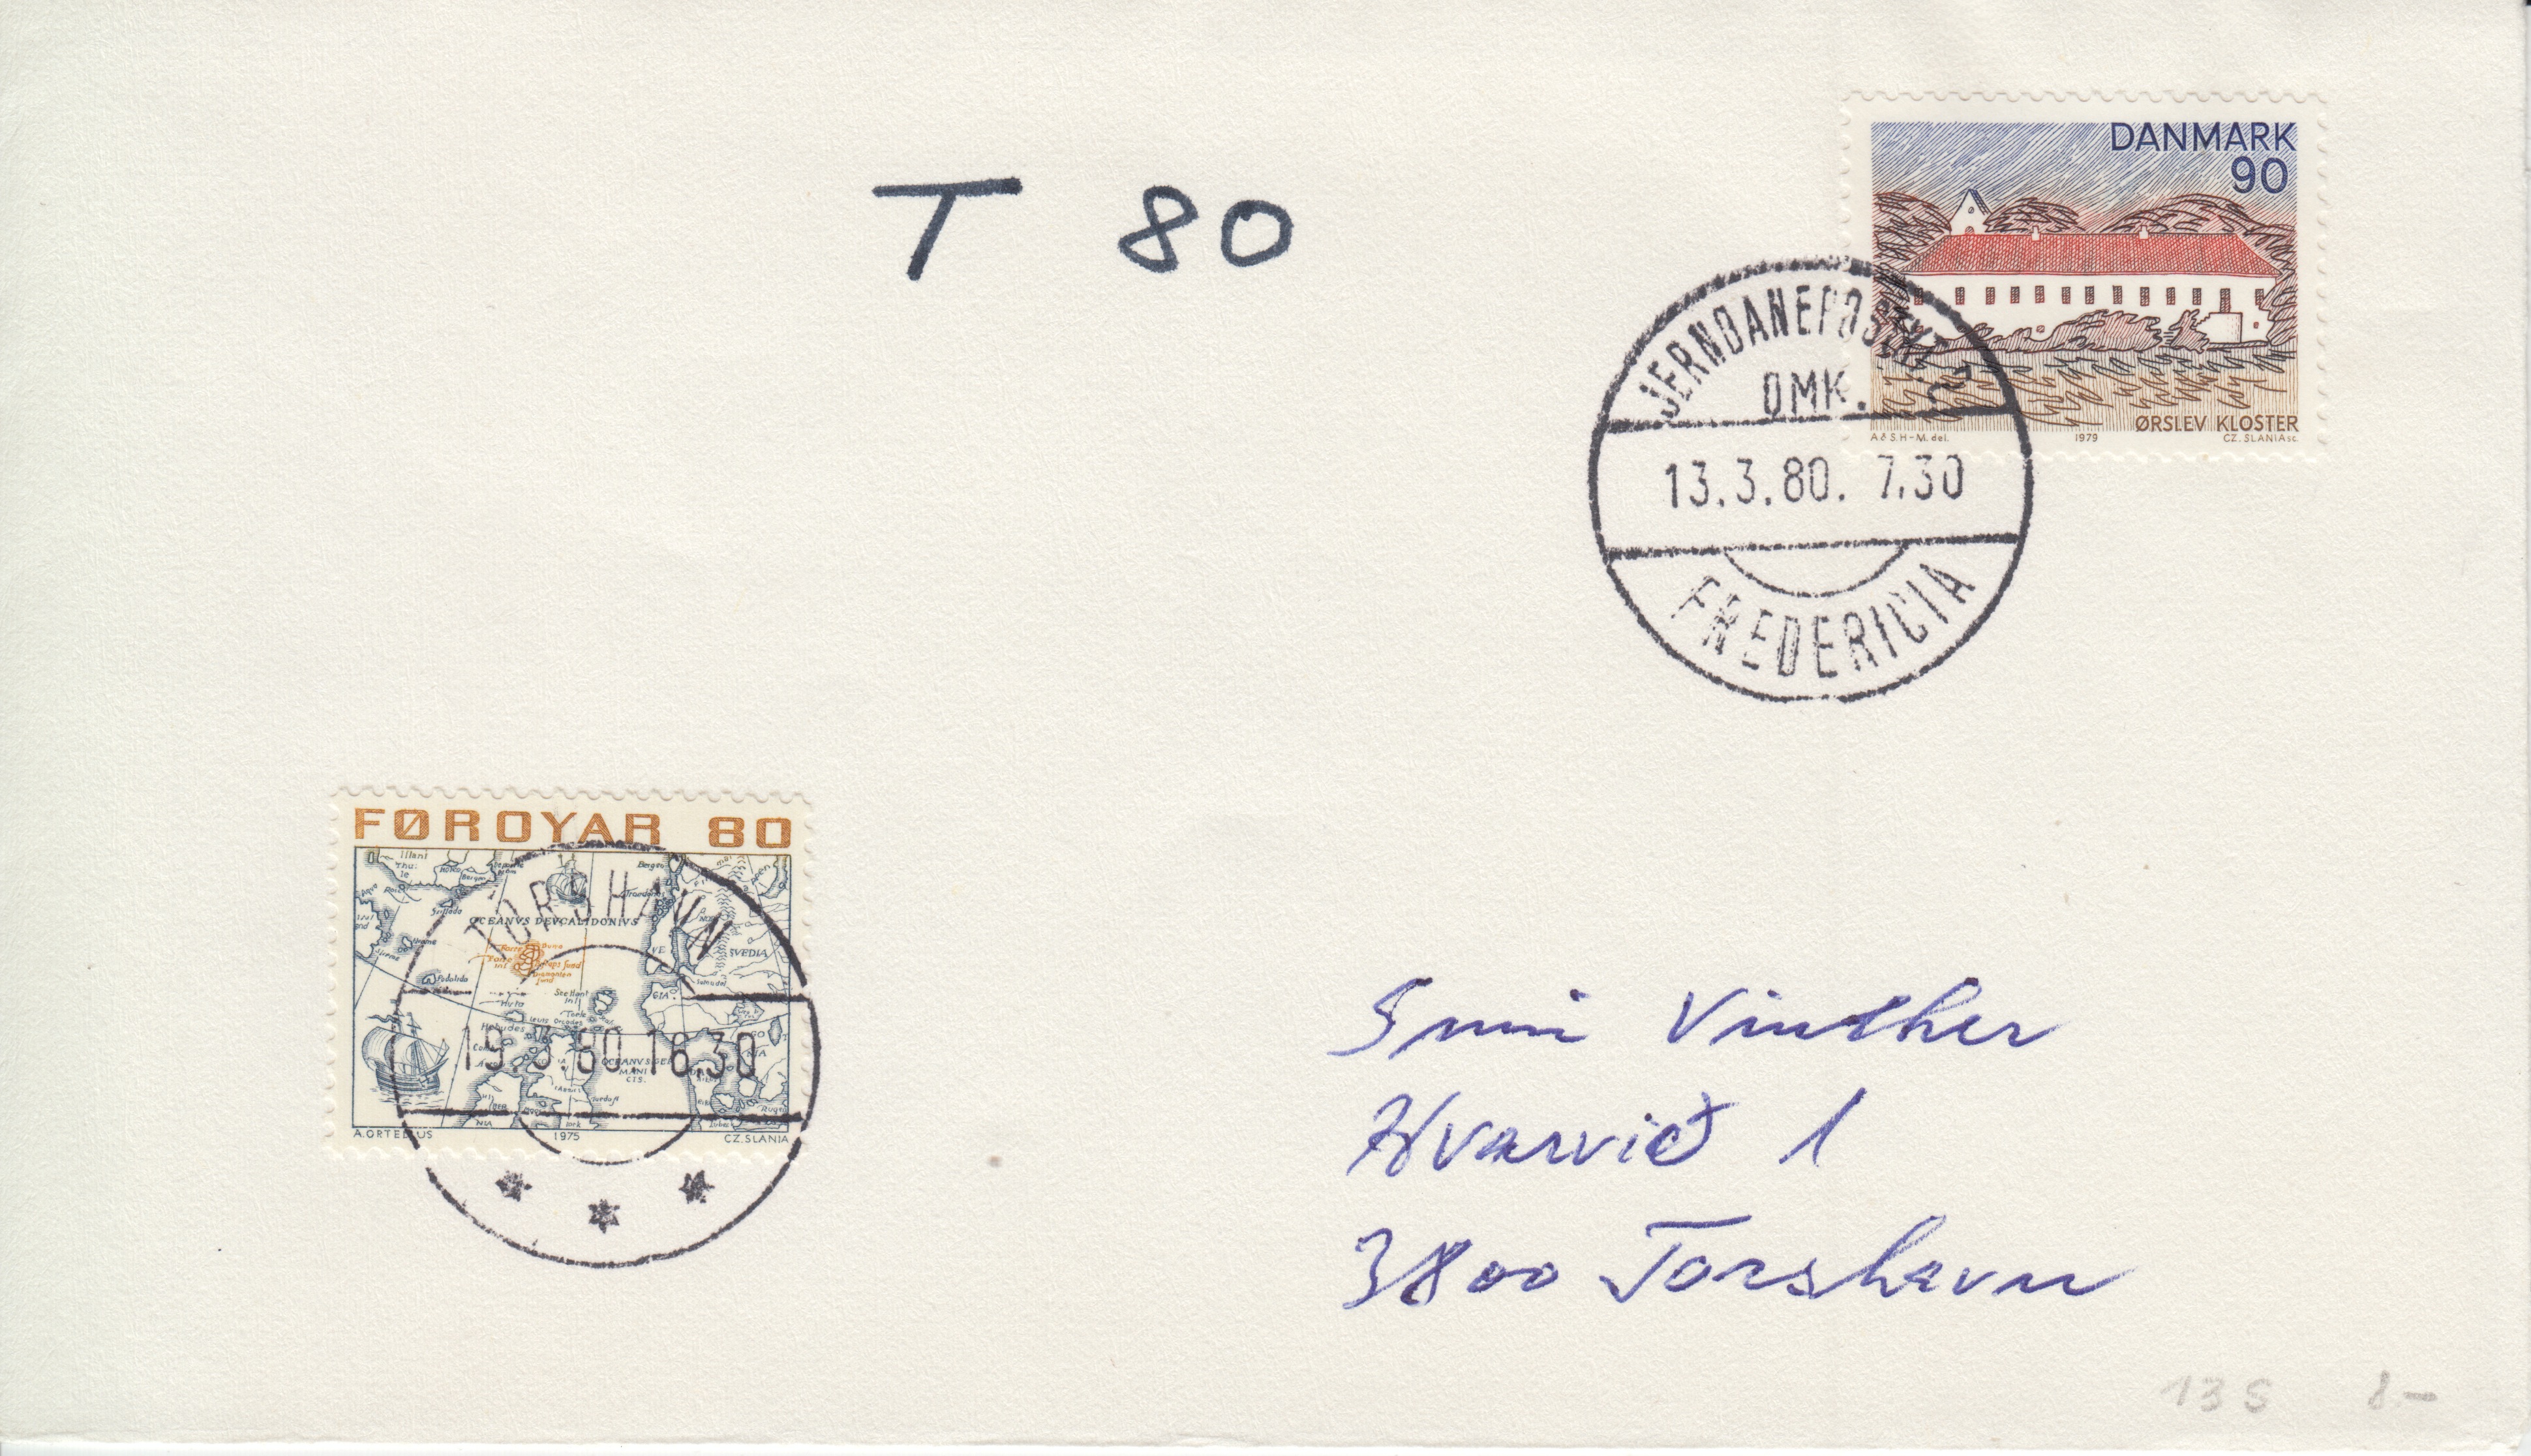 T 80
DANMARK
90
ØRSLEV KLOSTER
A & S.H-M. del. 1979 CZ. SLANIA sc.
JERNBANEPOSTKT.
OMK.
13.3.80. 7.30
FREDERICIA
FØROYAR 80
OCEANVS DEVCALIDONIVS
SVEDIA
Hebudes
OCEANVS GER
MANI
CTS.
A. ORTELIUS 1975 CZ. SLANIA
TÓRSHAVN
19.3.80.16.30
Vinther
Hvarvið 1
3800 Torshavn
13 S 8.-